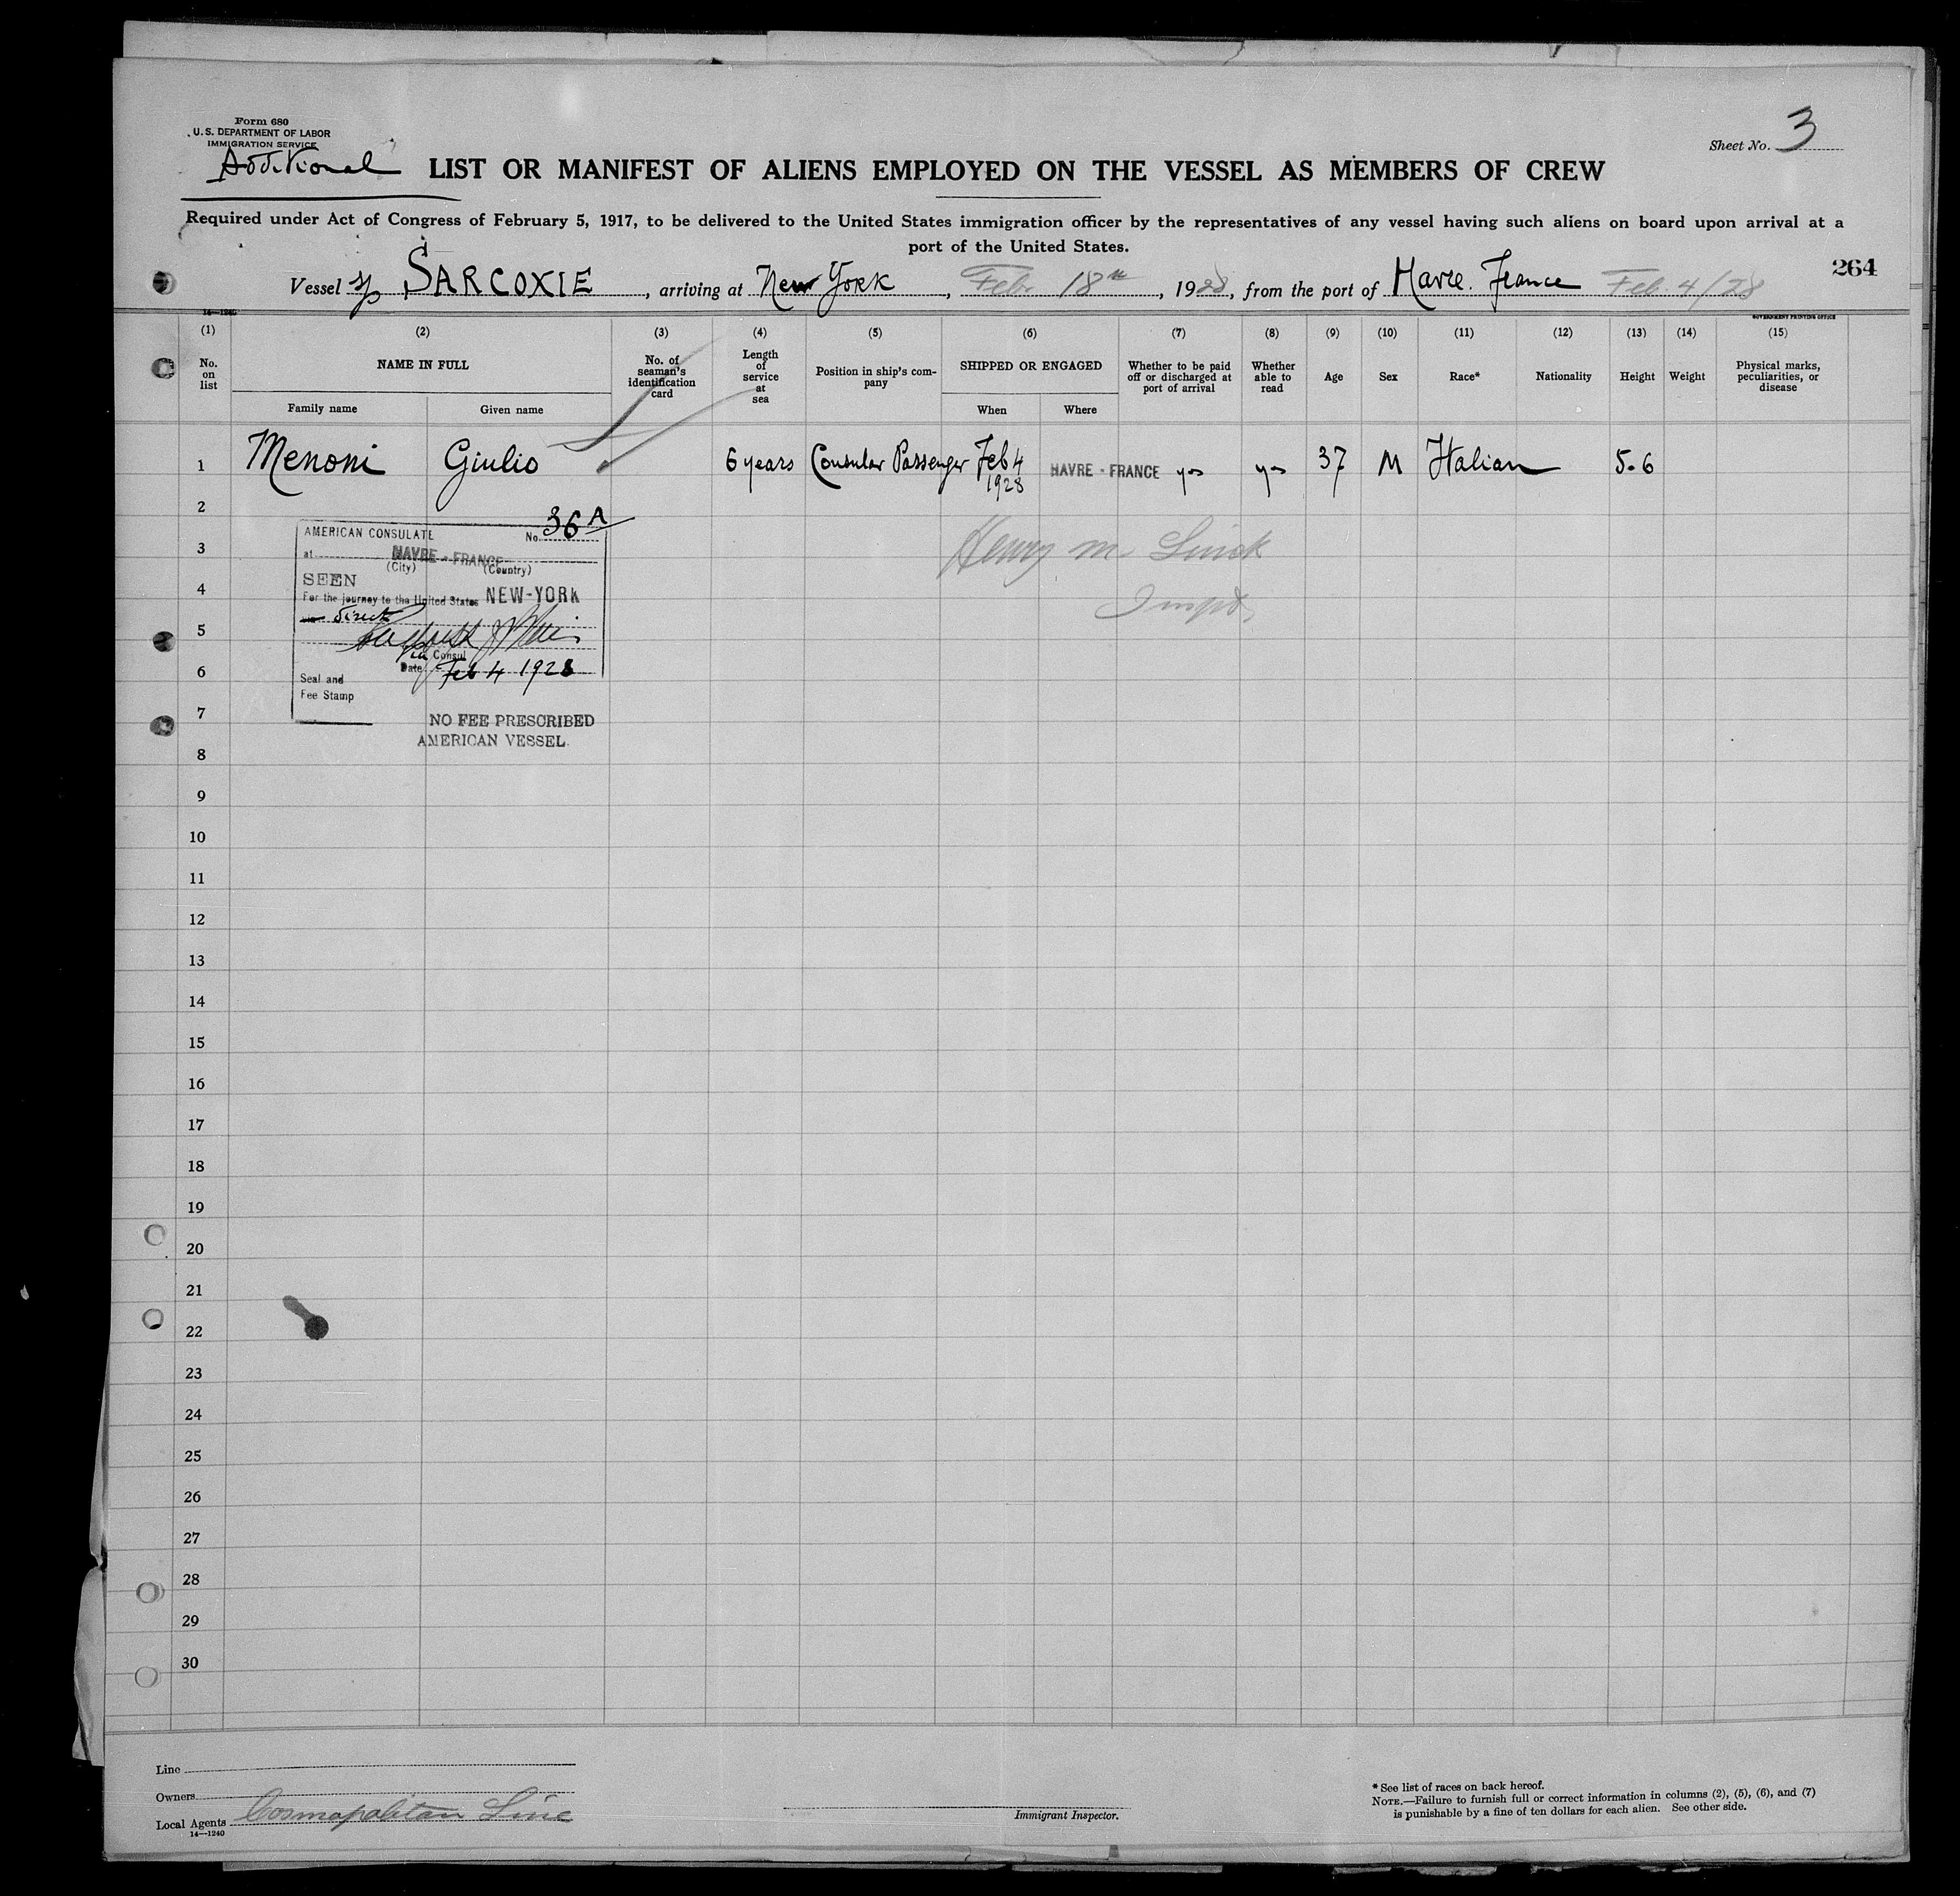 Form 680
U. S. DEPARTMENT OF LABOR
IMMIGRATION SERVICE
Sheet No. 3
Additional LIST OR MANIFEST OF ALIENS EMPLOYED ON THE VESSEL AS MEMBERS OF CREW
Required under Act of Congress of February 5, 1917, to be delivered to the United States immigration officer by the representatives of any vessel having such aliens on board upon arrival at a
port of the United States.
264
Vessel SARCOXIE, arriving at New York, Feb. 18th, 1928, from the port of Havre. France Feb. 4/28
14—1240
GOVERNMENT PRINTING OFFICE
(1) (2) (3) (4) (5) (6) (7) (8) (9) (10) (11) (12) (13) (14) (15)
No. on list
NAME IN FULL
Family name Given name
No. of seaman's identification card
Length of service at sea
Position in ship's com-pany
SHIPPED OR ENGAGED
When Where
Whether to be paid off or discharged at port of arrival
Whether able to read
Age
Sex
Race*
Nationality
Height
Weight
Physical marks, peculiarities, or disease
1 Menoni Giulio 6 years Consular Passenger Feb 4 1928 HAVRE - FRANCE yes yes 37 M Italian 5.6
2
3
4
5
6
7
8
9
10
11
12
13
14
15
16
17
18
19
20
21
22
23
24
25
26
27
28
29
30
AMERICAN CONSULATE No. 36A
at HAVRE - FRANCE
(City) (Country)
SEEN
For the journey to the United States NEW-YORK
via direct
Consul
Date Feb 4 1928
Seal and
Fee Stamp
NO FEE PRESCRIBED
AMERICAN VESSEL.
Henry M
Inspr.
Line
Owners
Local Agents Cosmopolitan Line
14—1240
Immigrant Inspector.
* See list of races on back hereof.
NOTE.—Failure to furnish full or correct information in columns (2), (5), (6), and (7)
is punishable by a fine of ten dollars for each alien. See other side.